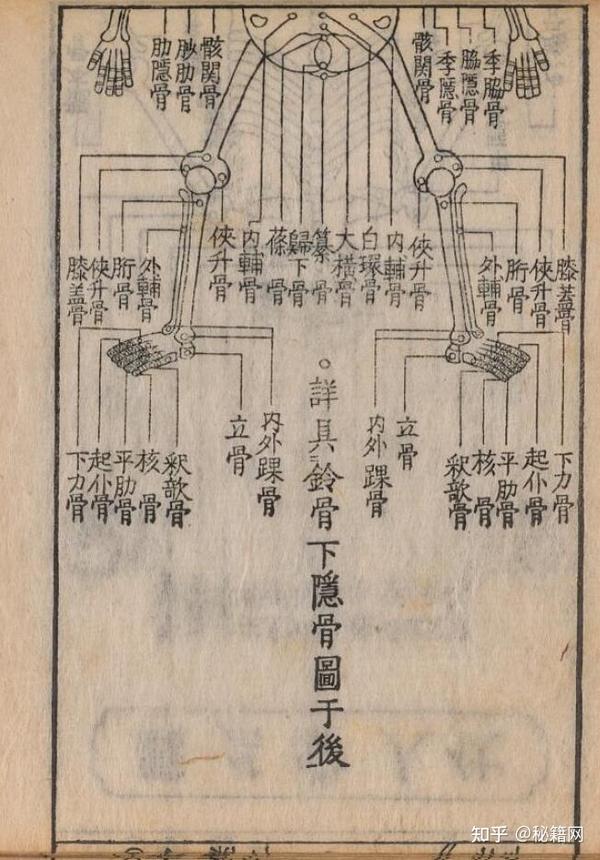 季脇骨
脇隱骨
季隱骨
骸関骨
骸関骨
肋隱骨
膝盖骨
俠升骨
胻骨
外輔骨
俠升骨
内輔骨
白環骨
大橫骨
纂骨
歸下骨
蓧骨
内輔骨
俠升骨
外輔骨
胻骨
俠升骨
膝盖骨
下力骨
起仆骨
平肋骨
核骨
釈欹骨
立骨
内外踝骨
。詳具鈴骨下隱骨圖于後
内外踝骨
立骨
釈欹骨
核骨
平肋骨
起仆骨
下力骨
知乎 @秘籍网